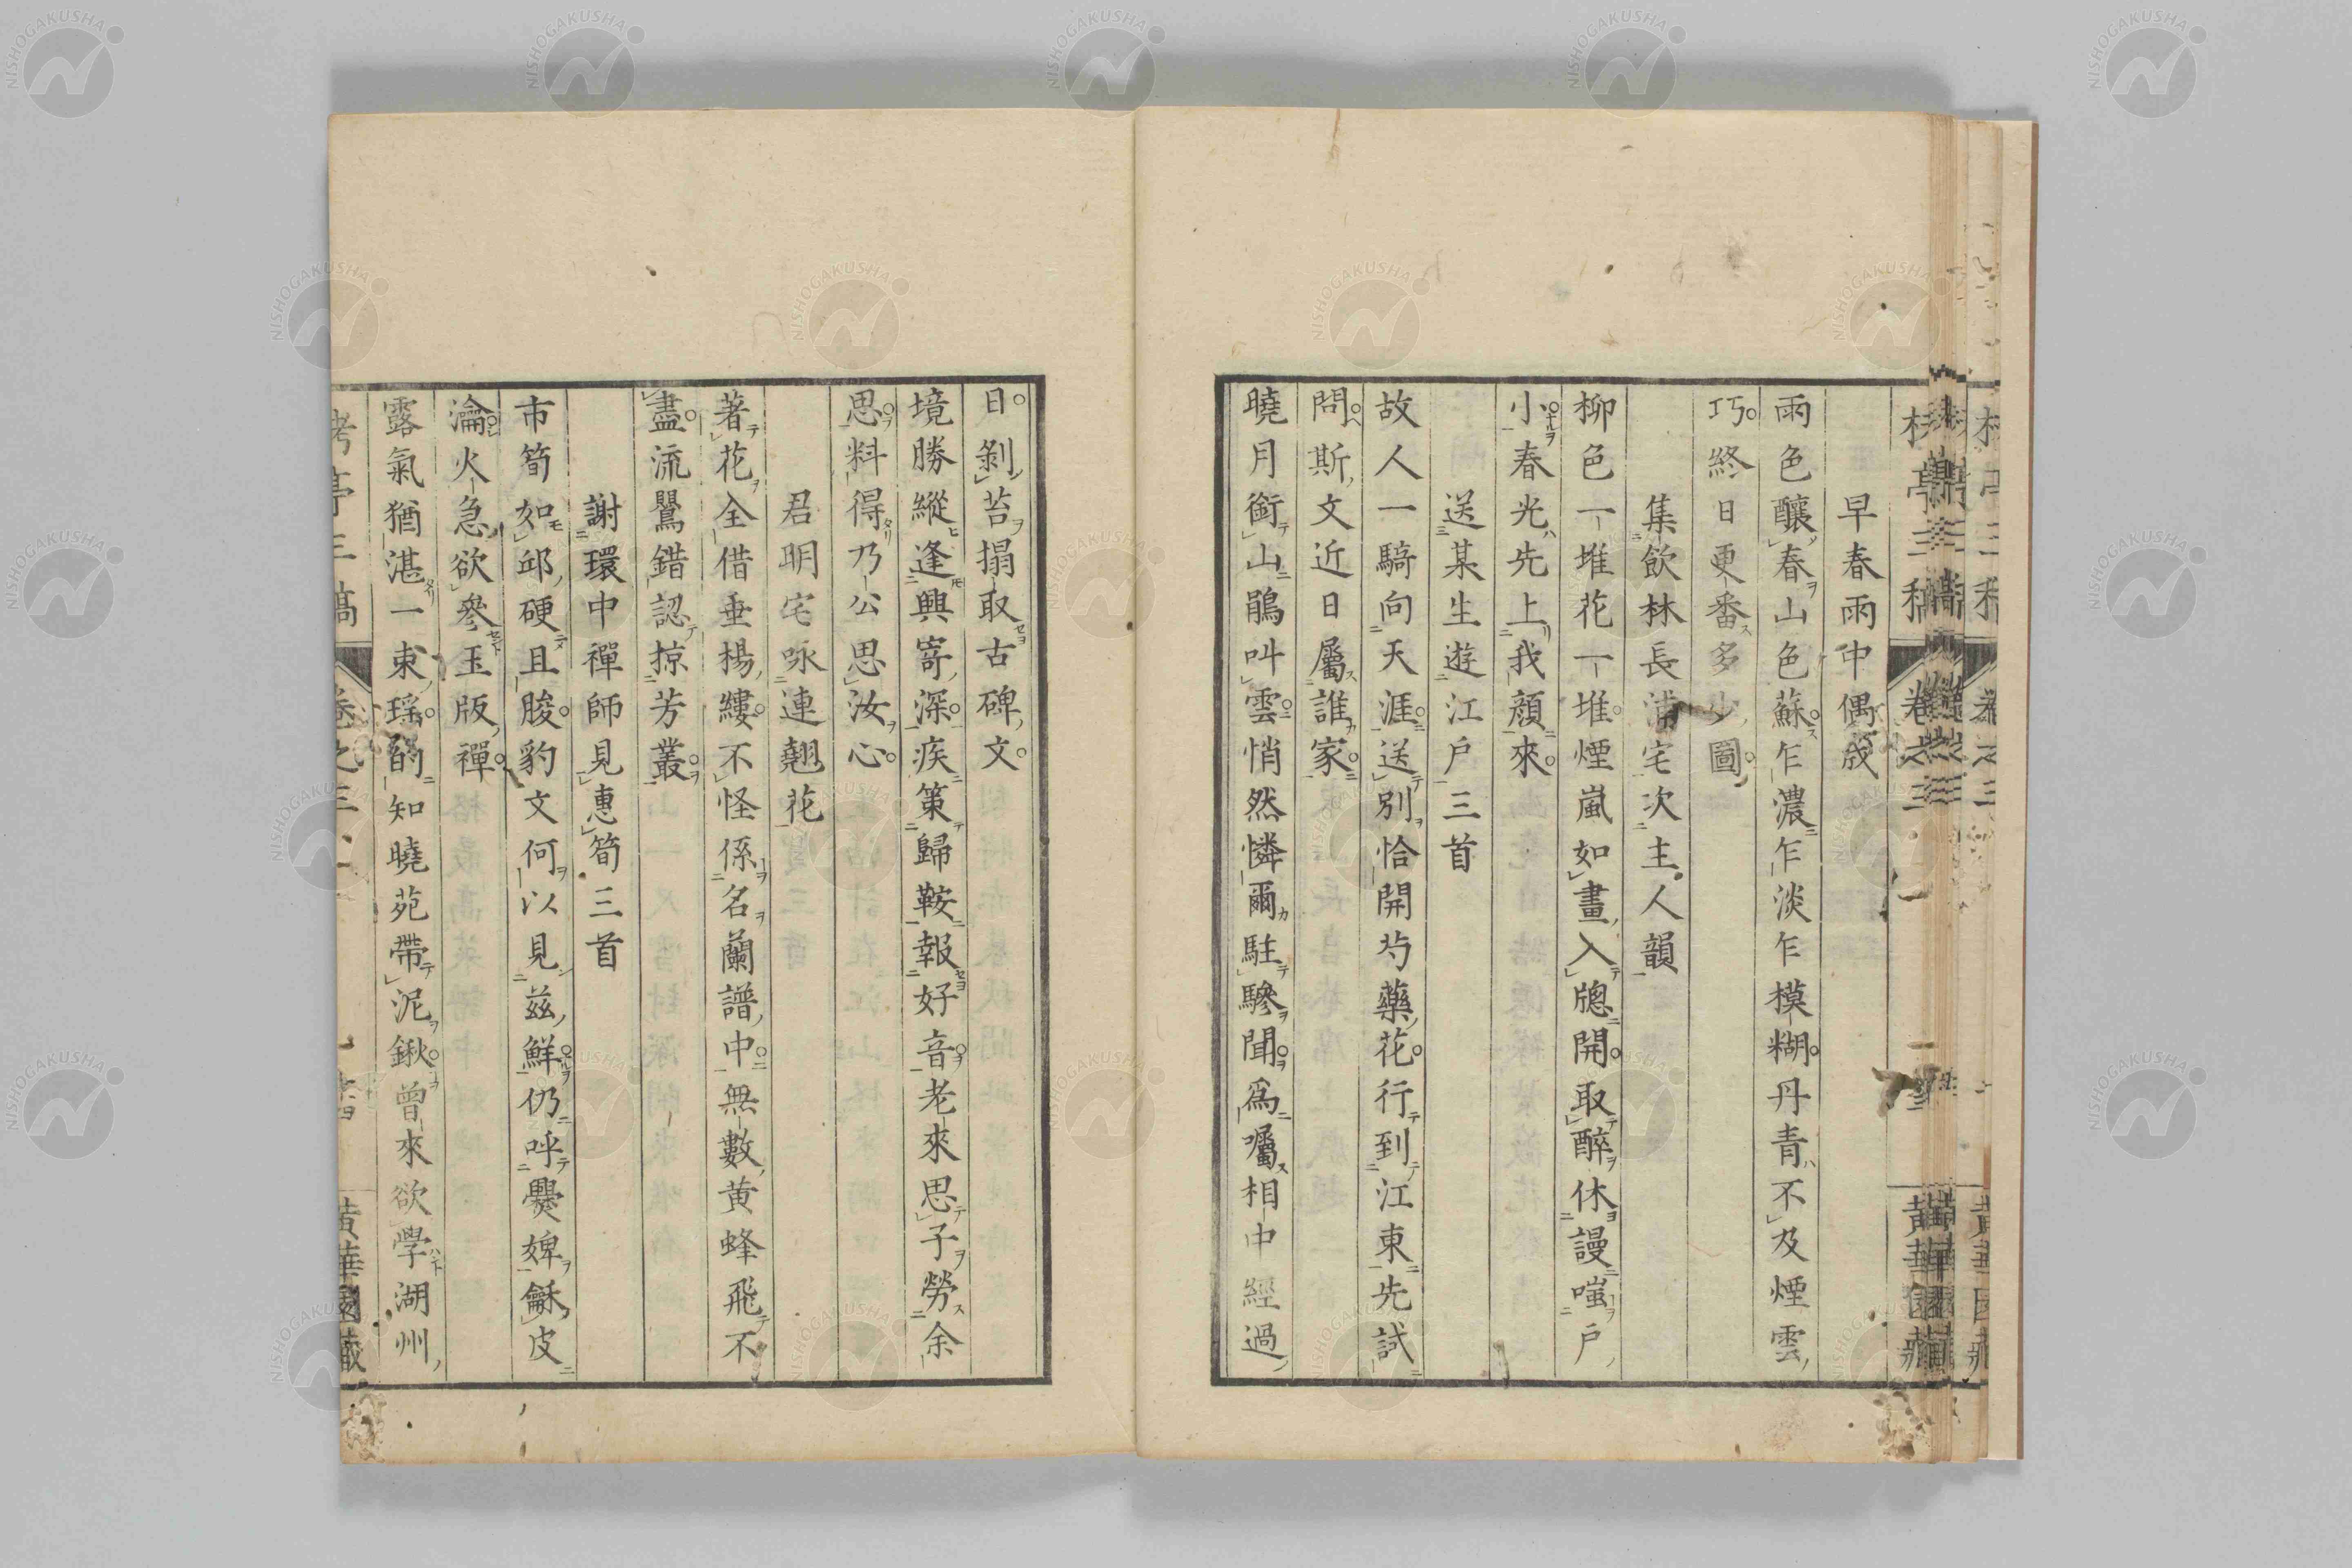 早春雨中偶成
雨色釀春山色蘇乍濃乍淡乍模糊丹青不及煙雲
巧終日更番多少圖
集飲林長浦宅次主人韻
柳色一堆花一堆煙嵐如畫入牕開取醉休謾嗤戶
小春光先上我顔來
送某生遊江戶三首
故人一騎向天涯送別恰開芍藥花行到江東先試
問斯文近日屬誰家
曉月銜山鵑叫雲悄然憐爾駐驂聞爲囑相中經過
日剝苔搨取古碑文
境勝縱逢興寄深疾策歸鞍報好音老來思子勞余
思料得乃公思汝心
君明宅咏連翹花
著花全借垂楊縷不怪係名蘭譜中無數黄蜂飛不
盡流鸎錯認掠芳叢
謝環中禪師見惠筍三首
市筍如邱硬且朘豹文何以見兹鮮仍呼爨婢龢皮
瀹火急欲參玉版禪
露氣猶湛一束瑶斸知曉苑帶泥鍬曾來欲學湖州
亭三稿 卷之三 黃華園藏